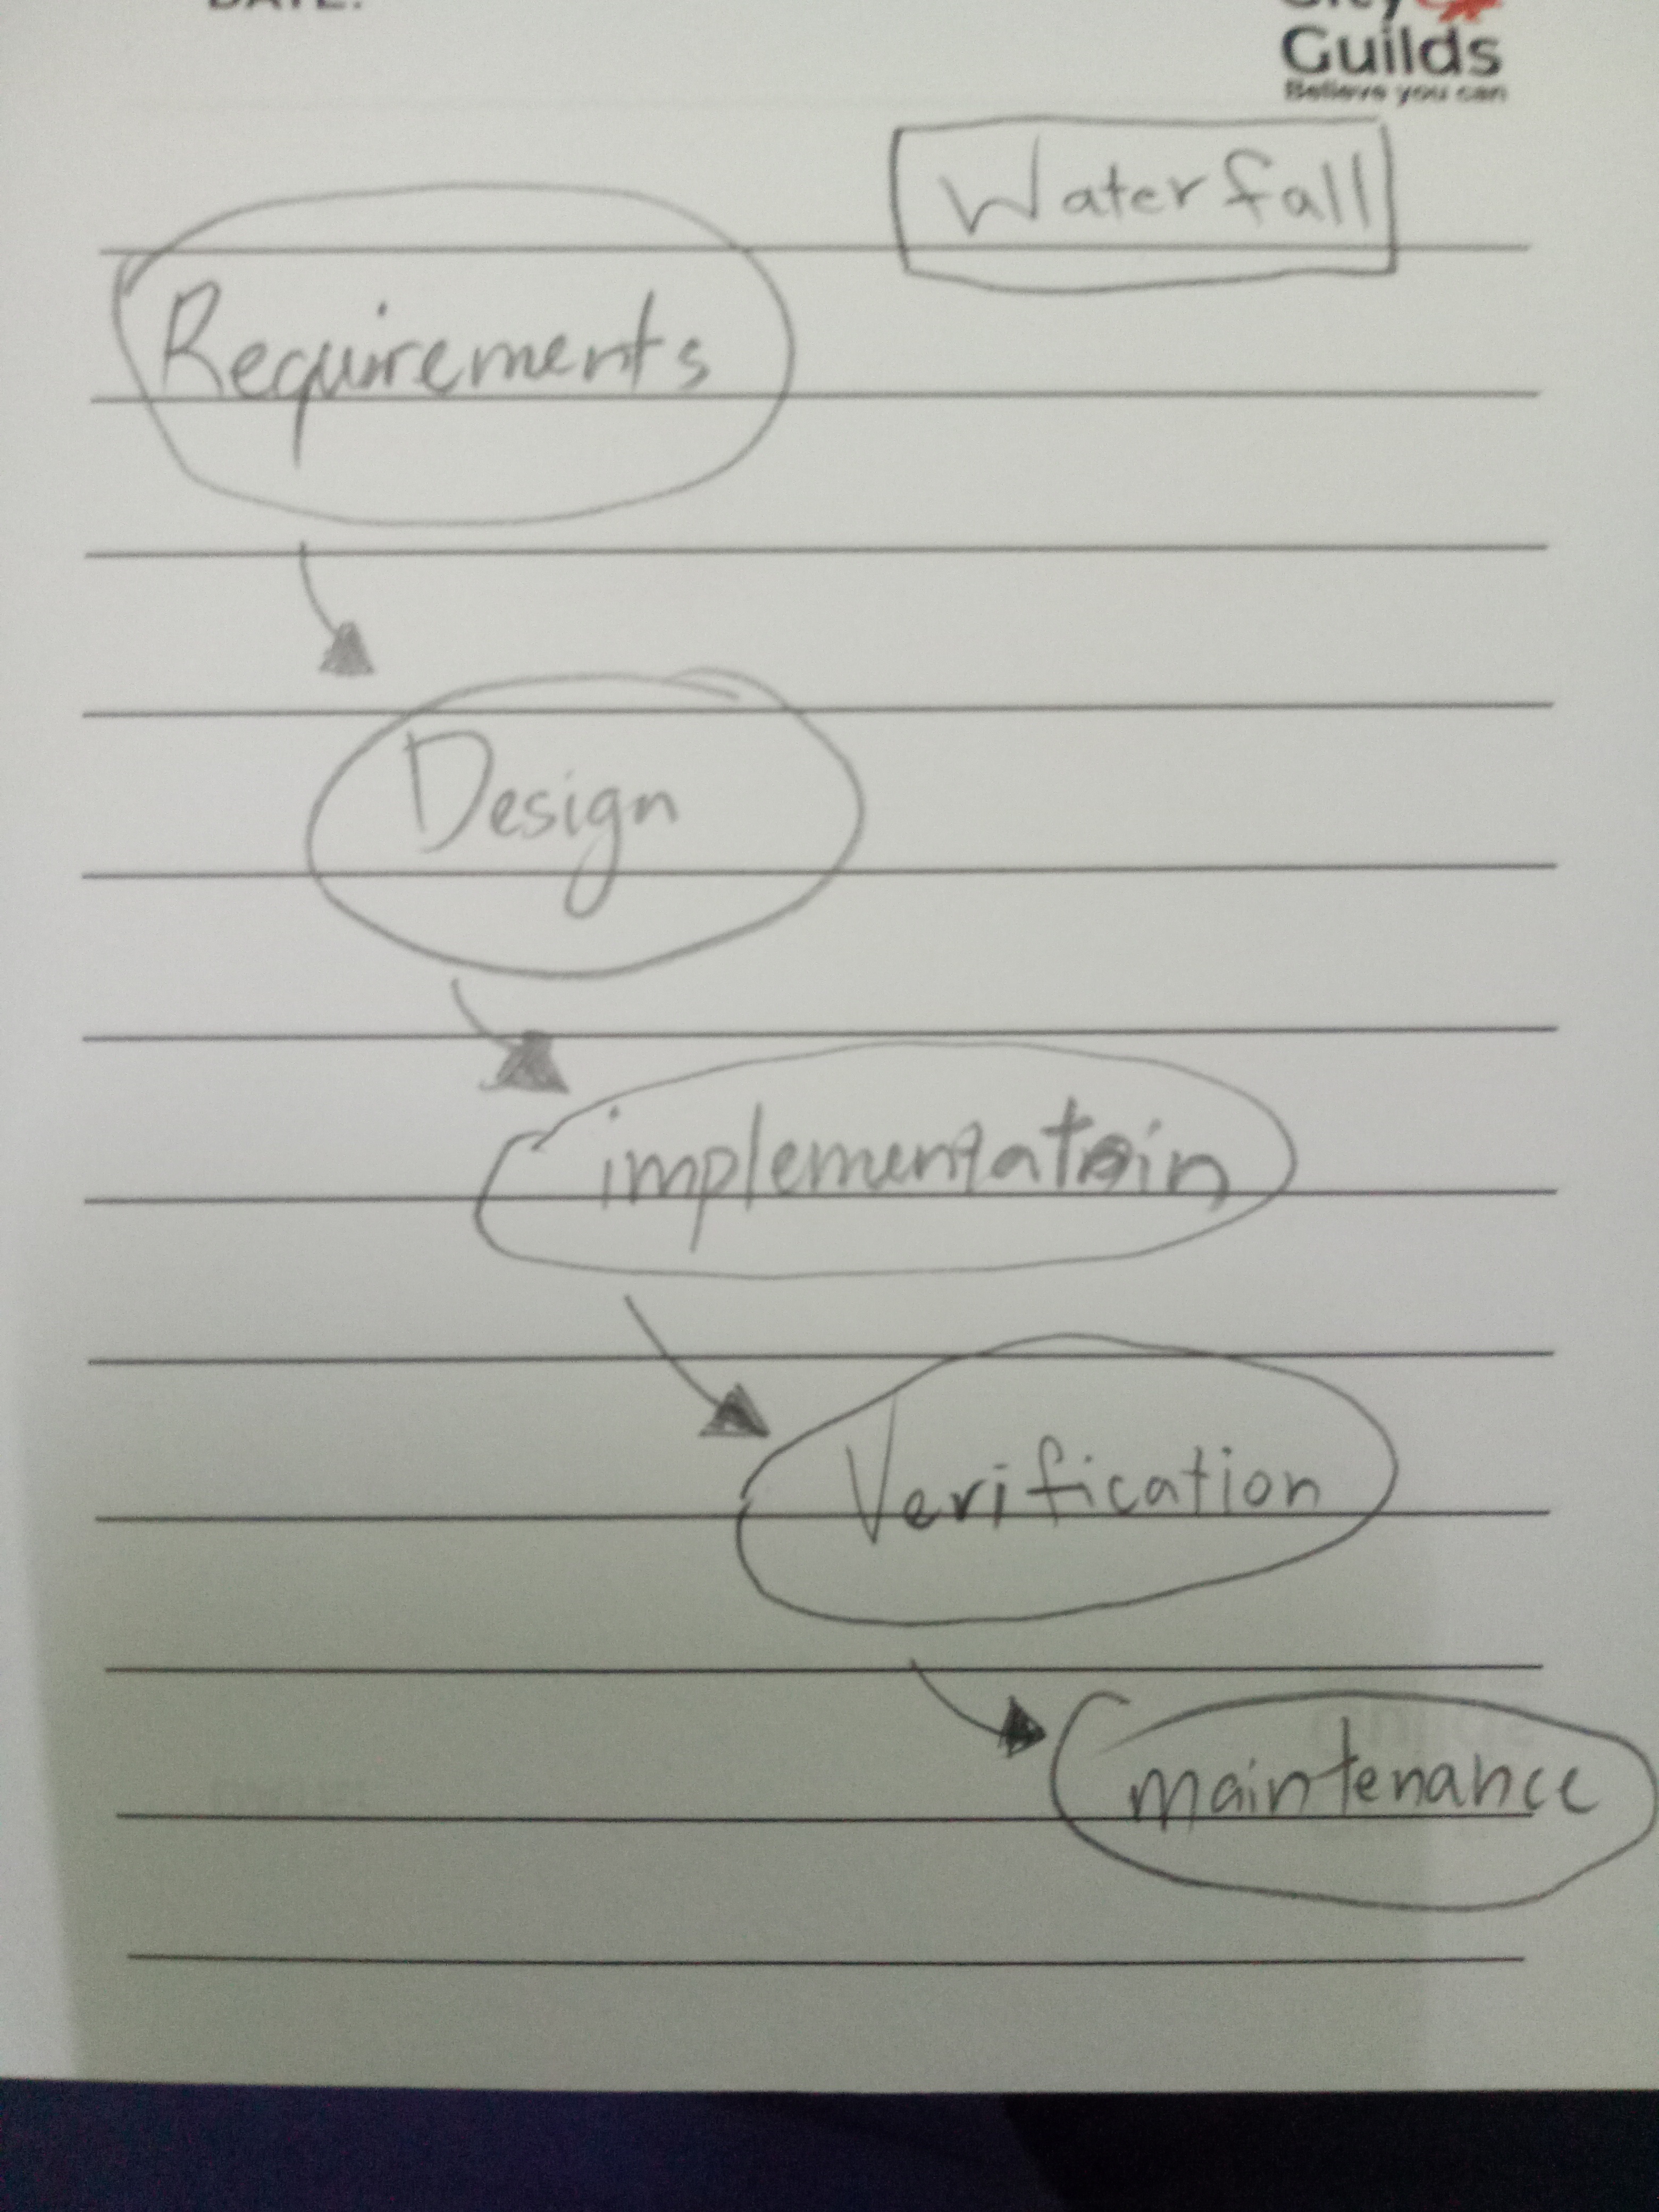 DATE:
City
Guilds
Believe you can
Waterfall
Requirements
Design
implementatoin
Verification
maintenance